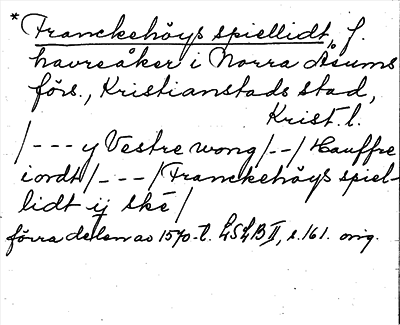 * Franckehöys spiellidt, f.
havreåker i Norra Åsums
förs., Kristianstads stad,
Krist. l.
/--- y Vestre wong/--/Hauffre
iordt/---/Franckehöyß spiel-
lidt ij ske/
förra delen av 1570-t. LSLB II, s. 161. orig.